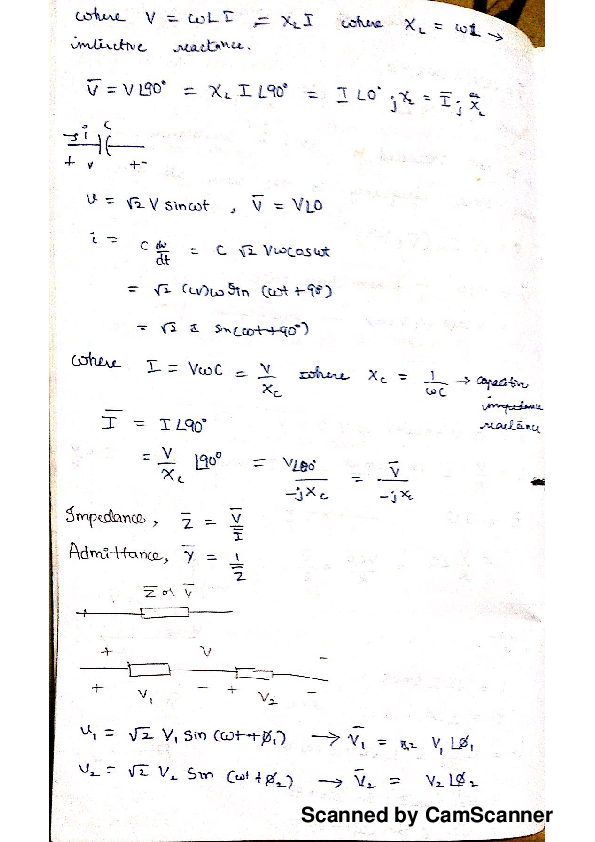 where V = ωLI = X_L I where X_L = ωL →
inductive reactance.
V̅ = V∠90° = X_L I ∠90° = I ∠0° jX_L = I̅ j X_L
i C
+ v + -
v = √2 V sinωt , V̅ = V∠0
i = C dv/dt = C √2 Vω cosωt
= √2 (cv)ω Sin (ωt + 90)
= √2 I sin(ωt+90°)
where I = VωC = V/X_C where X_C = 1/ωC → capacitive
reactance
I̅ = I∠90°
= V/X_C ∠90° = V∠0°/-jX_C = V̅/-jX_C
Impedance, Z̅ = V̅/I̅
Admittance, Y̅ = 1/Z̅
Z̅ or Y̅
+ V -
+ V₁ - + V₂ -
v₁ = √2 V₁ Sin (ωt + ϕ₁) → V̅₁ = V₁ ∠ϕ₁
v₂ = √2 V₂ Sin (ωt + ϕ₂) → V̅₂ = V₂ ∠ϕ₂
Scanned by CamScanner